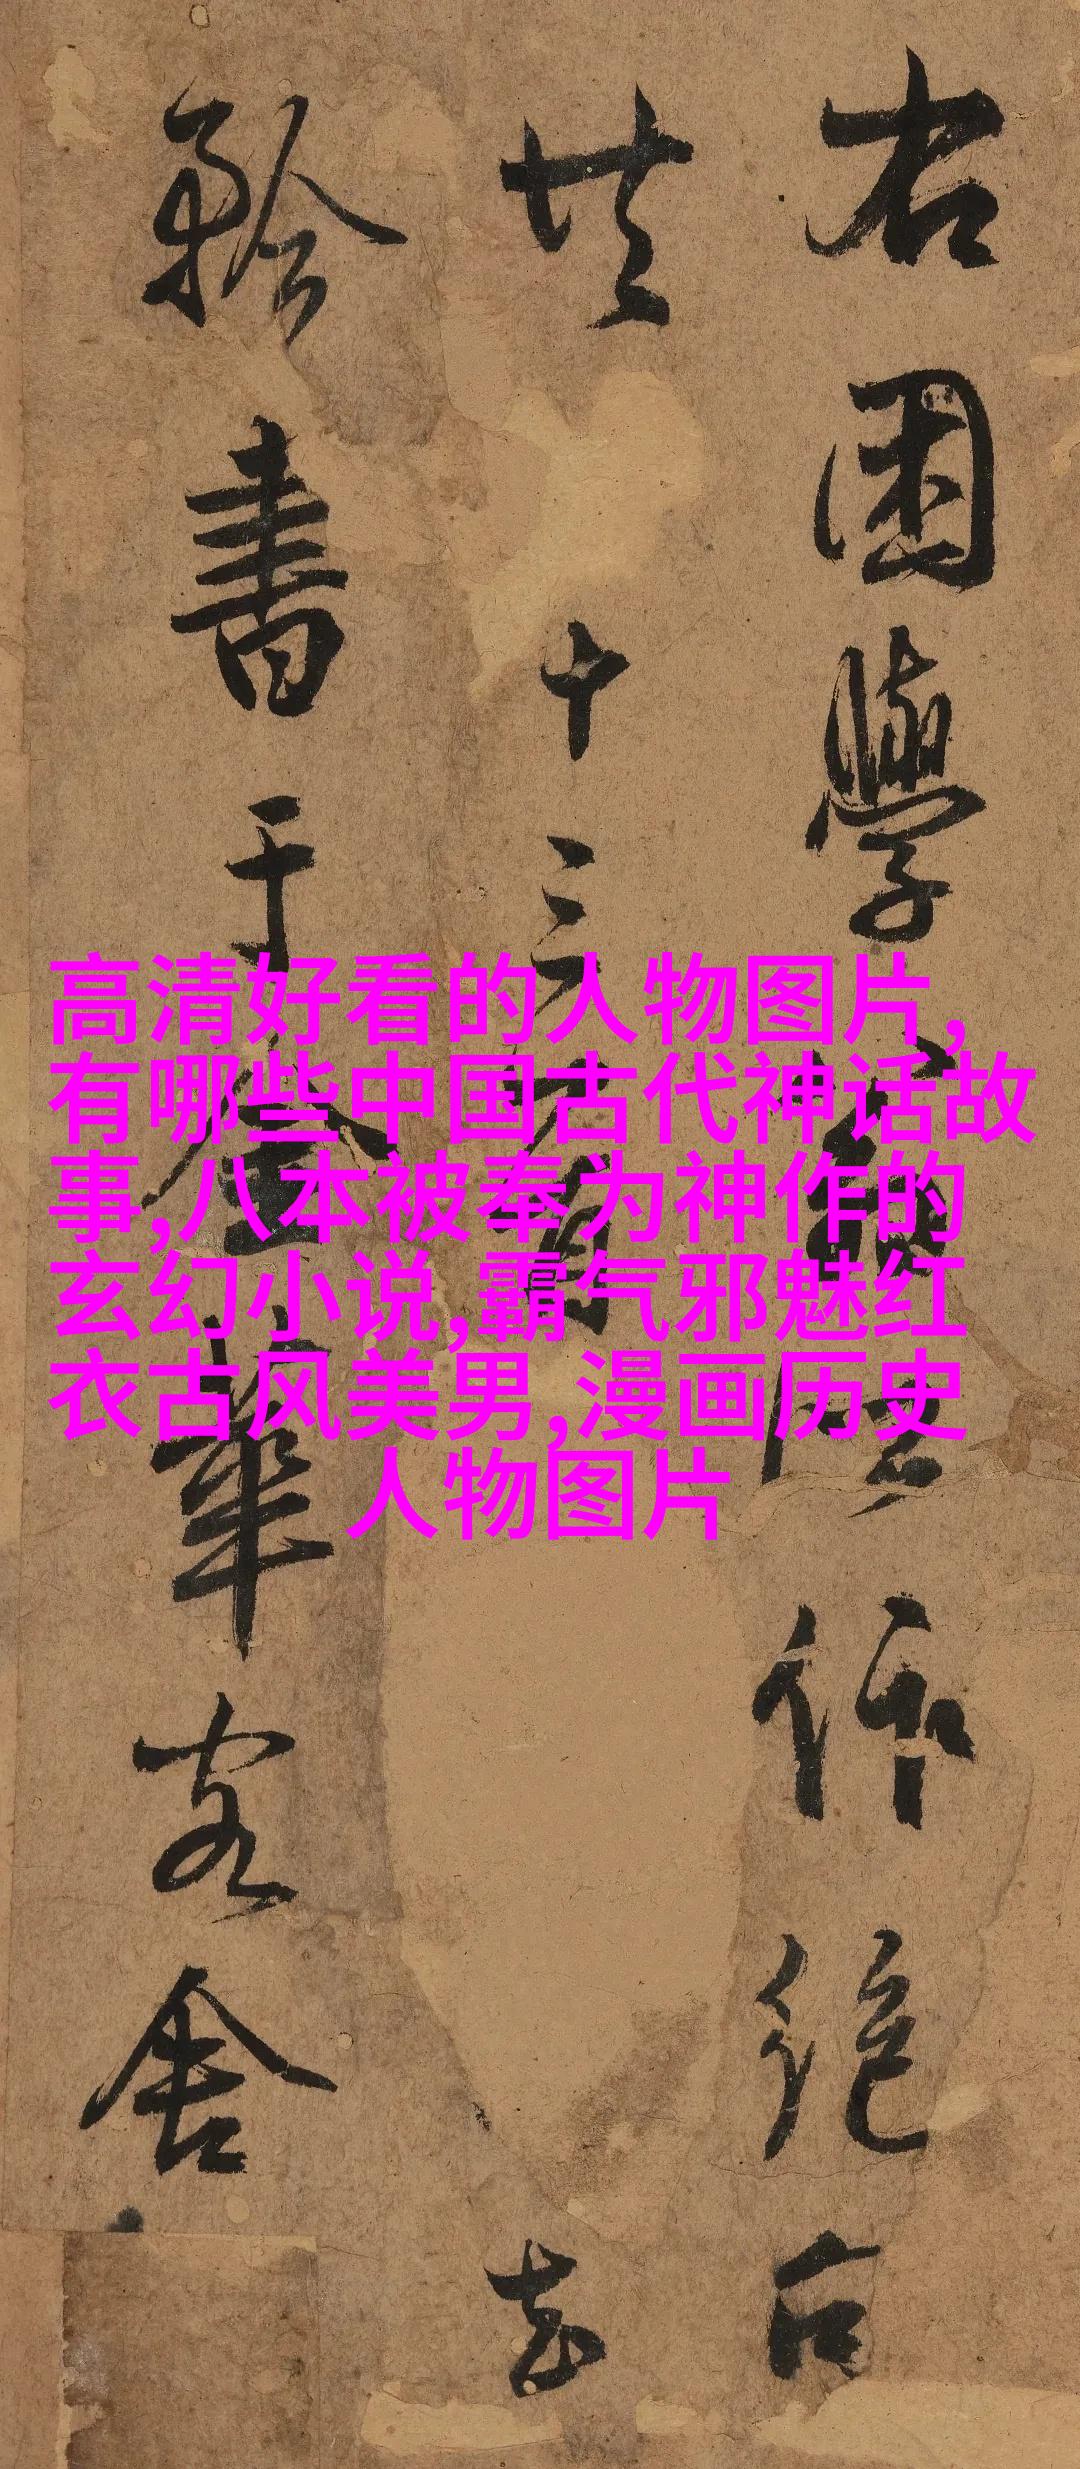 高清好看的人物图片,
有哪些中国古代神话故
事,八本被奉为神作的
玄幻小说,霸气邪魅红
衣古风美男,漫画历史
人物图片
右困學作絕句
共十三首
書于金華客舍